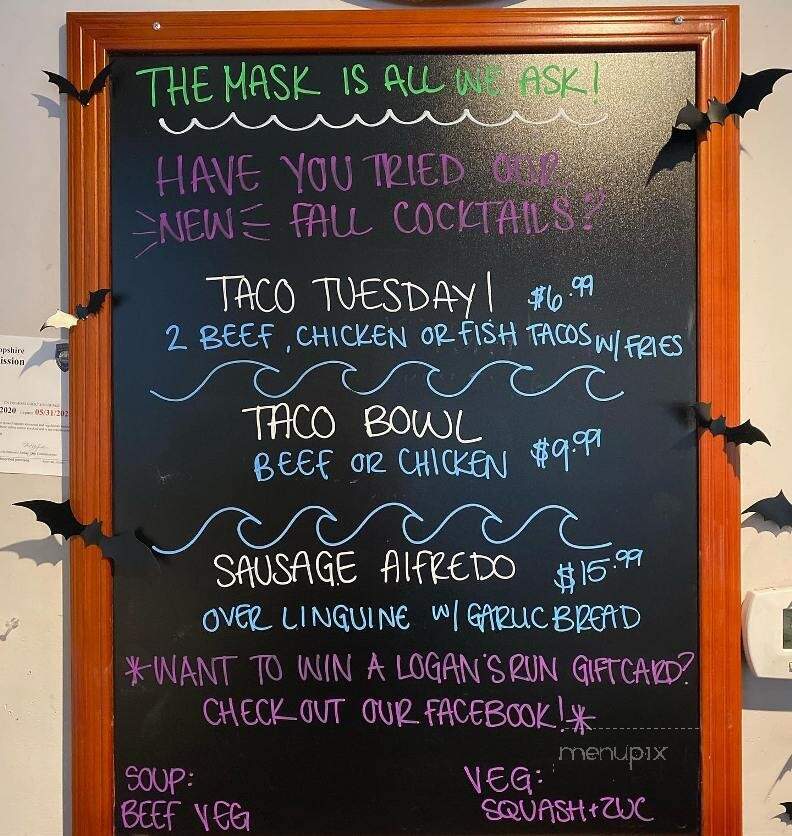 THE MASK IS ALL WE ASK!
HAVE YOU TRIED OUR
NEW FALL COCKTAILS?
TACO TUESDAY! $6.99
2 BEEF, CHICKEN OR FISH TACOS W/ FRIES
TACO BOWL
BEEF OR CHICKEN $9.99
SAUSAGE AlFREDO $15.99
OVER LINGUINE W/ GARLIC BREAD
*WANT TO WIN A LOGAN'S RUN GIFTCARD?
CHECK OUT OUR FACEBOOK!*
menupix
SOUP:
BEEF VEG
VEG:
SQUASH + ZUC
pshire
ission
2020 05/31/202